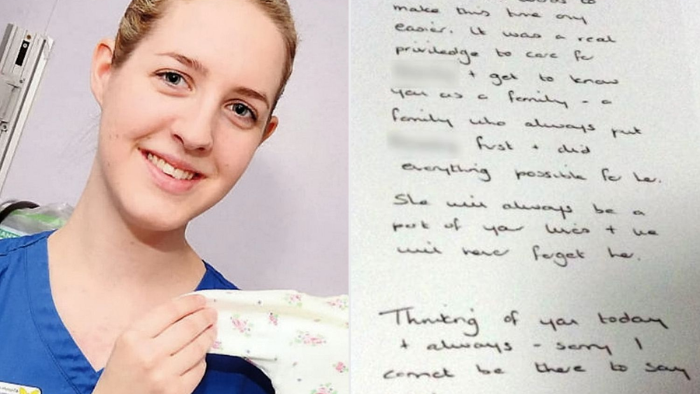 make this time any
easier. It was a real
priviledge to care for
+ get to know
you as a family - a
family who always put
first + did
everything possible for her.
She will always be a
part of your lives + we
will never forget her.
Thinking of you today
+ always - sorry I
cannot be there to say